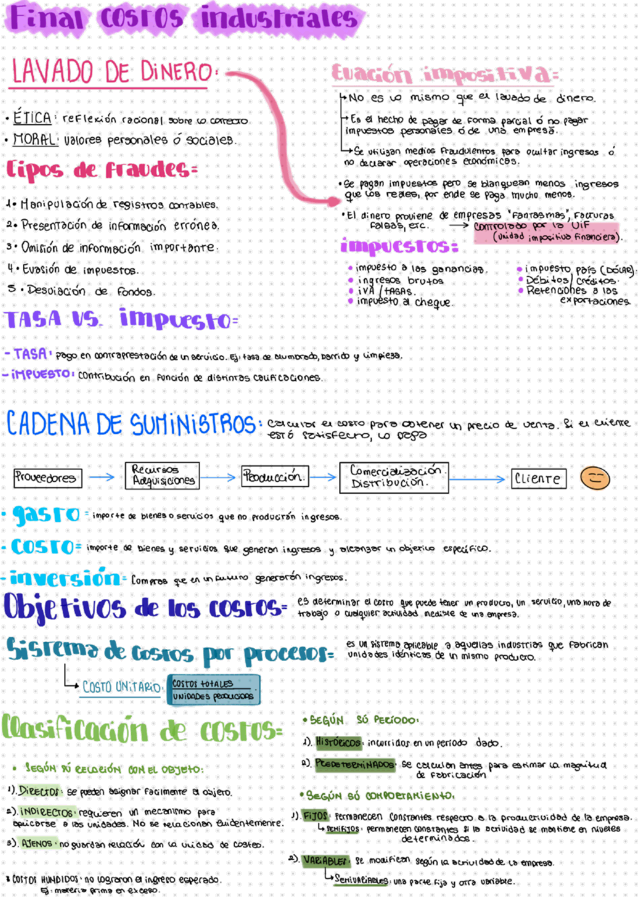 Final costos industriales
LAVADO DE DINERO:
• ÉTICA: reflexión racional sobre lo correcto.
• MORAL: valores personales ó sociales.
Tipos de fraudes=
1• Manipulación de registros contables.
2• Presentación de información errónea.
3• Omisión de información importante.
4• Evasión de impuestos.
5• Desviación de fondos.
Evación impositiva=
No es lo mismo que el lavado de dinero.
Es el hecho de pagar de forma parcial ó no pagar
impuestos personales ó de una empresa.
Se utilizan medios fraudulentos para ocultar ingresos ó
no declarar operaciones económicas.
• Se pagan impuestos pero se blanquean menos ingresos
que los reales, por ende se paga mucho menos.
• El dinero proviene de empresas "fantasmas", facturas
falsas, etc. → controlado por la UIF
(unidad impositiva financiera).
impuestos=
• impuesto a las ganancias.
• ingresos brutos
• iVA / TASAS.
• impuesto al cheque.
• impuesto país (DÓLAR).
• Débitos/ créditos.
• Retenciones a las
exportaciones.
TASA VS. impuesto=
- TASA: pago en contraprestación de un servicio. Ej: tasa de alumbrado, barrido y limpieza.
- iMPUESTO: contribución en función de distintas calificaciones.
CADENA DE SUMINISTROS: calcular el costo para obtener un precio de venta. Si el cliente
está satisfecho, lo paga
Proveedores → Recursos Adquisiciones → Producción. → Comercialización. Distribución. → Cliente
• gasto = importe de bienes o servicios que no producirán ingresos.
• COSTO= importe de bienes y servicios que generan ingresos y alcanzar un objetivo específico.
- inversión= Compras que en un futuro generarán ingresos.
Objetivos de los costos= es determinar el costo que puede tener un producto, un servicio, una hora de
trabajo o cualquier actividad medible de una empresa.
Sistema de costos por procesos= es un sistema aplicable a aquellas industrias que fabrican
unidades idénticas de un mismo producto.
COSTO UNITARIO: COSTOS TOTALES
UNIDADES PRODUCIDAS
Clasificación de costos=
• SEGÚN SU RELACIÓN CON EL OBJETO:
1). DIRECTOS: se pueden asignar facilmente al objeto.
2). INDIRECTOS: requieren un mecanismo para
aplicarse a las unidades. No se relacionan evidentemente.
3). AJENOS: no guardan relación con la unidad de costeo.
* COSTOS HUNDIDOS: no lograron el ingreso esperado.
Ej: materia prima en exceso.
• SEGÚN SÓ PERÍODO:
1). HISTÓRICOS: incurridos en un período dado.
2). PREDETERMINADOS: se calculan antes para estimar la magnitud
de fabricación
• SEGÚN SÓ COMPORTAMIENTO:
1). FIJOS: permanecen constantes respecto a la productividad de la empresa.
SEMIFIJOS: permanecen constantes si la actividad se mantiene en niveles
determinados.
2). VARIABLES: se modifican según la actividad de la empresa.
Semivariables: una parte fija y otra variable.